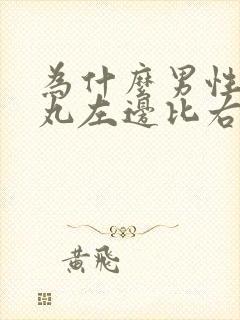 為什麼男性
丸左邊比右
黃飛